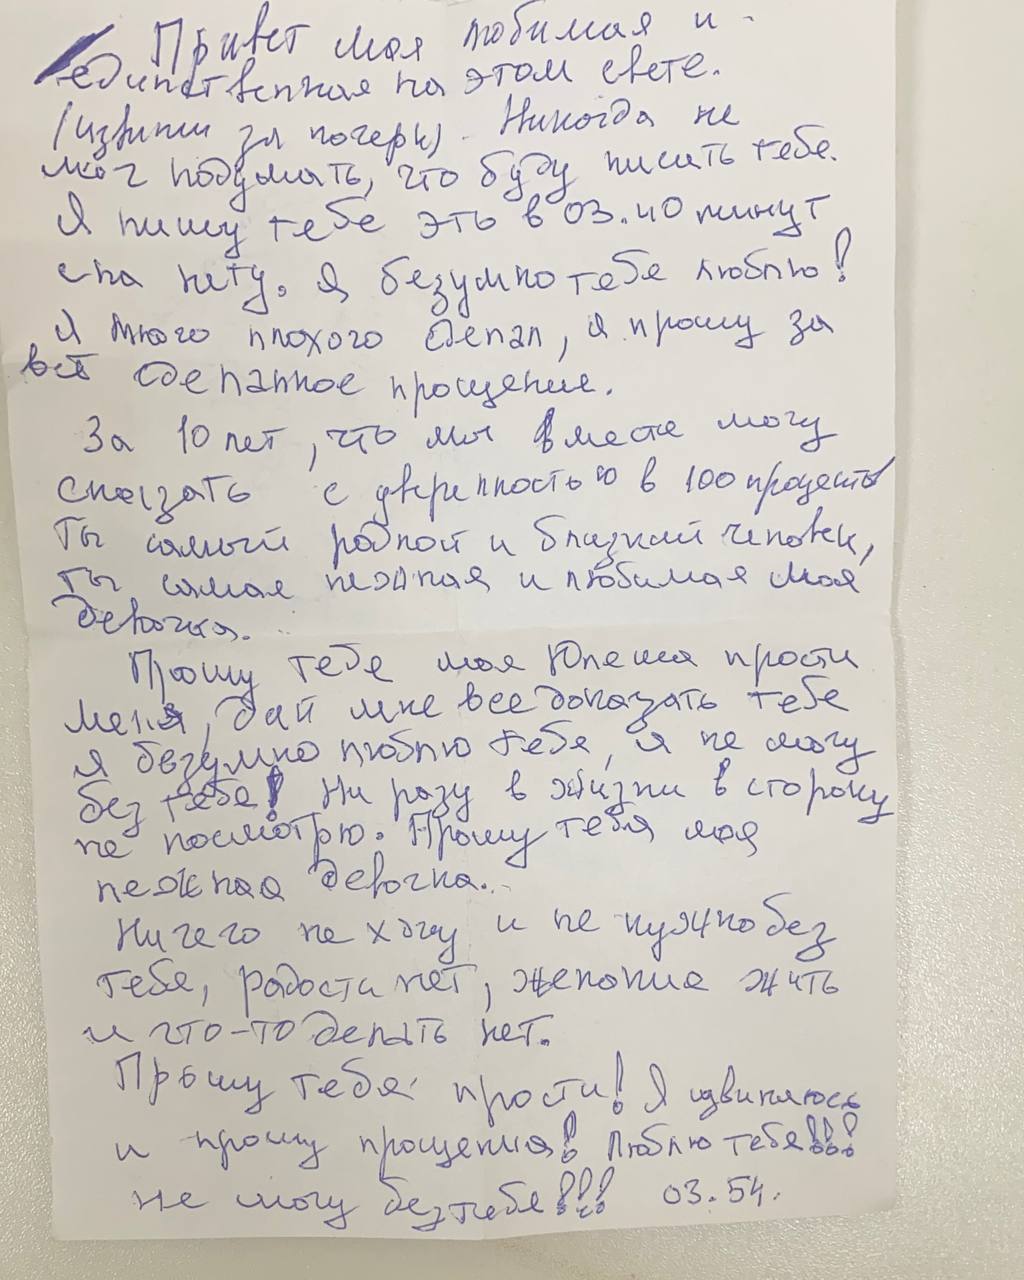 Привет моя любимая и
единственная на этом свете.
(извини за почерк). Никогда не
мог подумать, что буду писать тебе.
Я пишу тебе это в 03.40 минут
сна нету. Я безумно тебе люблю!
Я много плохого сделал, я прошу за
всё сделанное прощение.
За 10 лет, что мы вместе могу
сказать с уверенностью в 100 проценты
Ты самый родной и близкий человек,
ты самая нежная и любимая моя
девочка...
Прошу тебе моя Юлеша прости
меня, дай мне все доказать тебе
я безумно люблю тебе, я не могу
без тебе! Ни разу в жизни в сторону
не посмотрю. Прошу тебя моя
нежная девочка...
Ничего не хочу и не нужно без
тебе, радости нет, желание жить
и что-то делать нет.
Прошу тебя прости! Я извиняюсь
и прошу прощения! Люблю тебя!!!
не могу без тебе!!! 03.54.